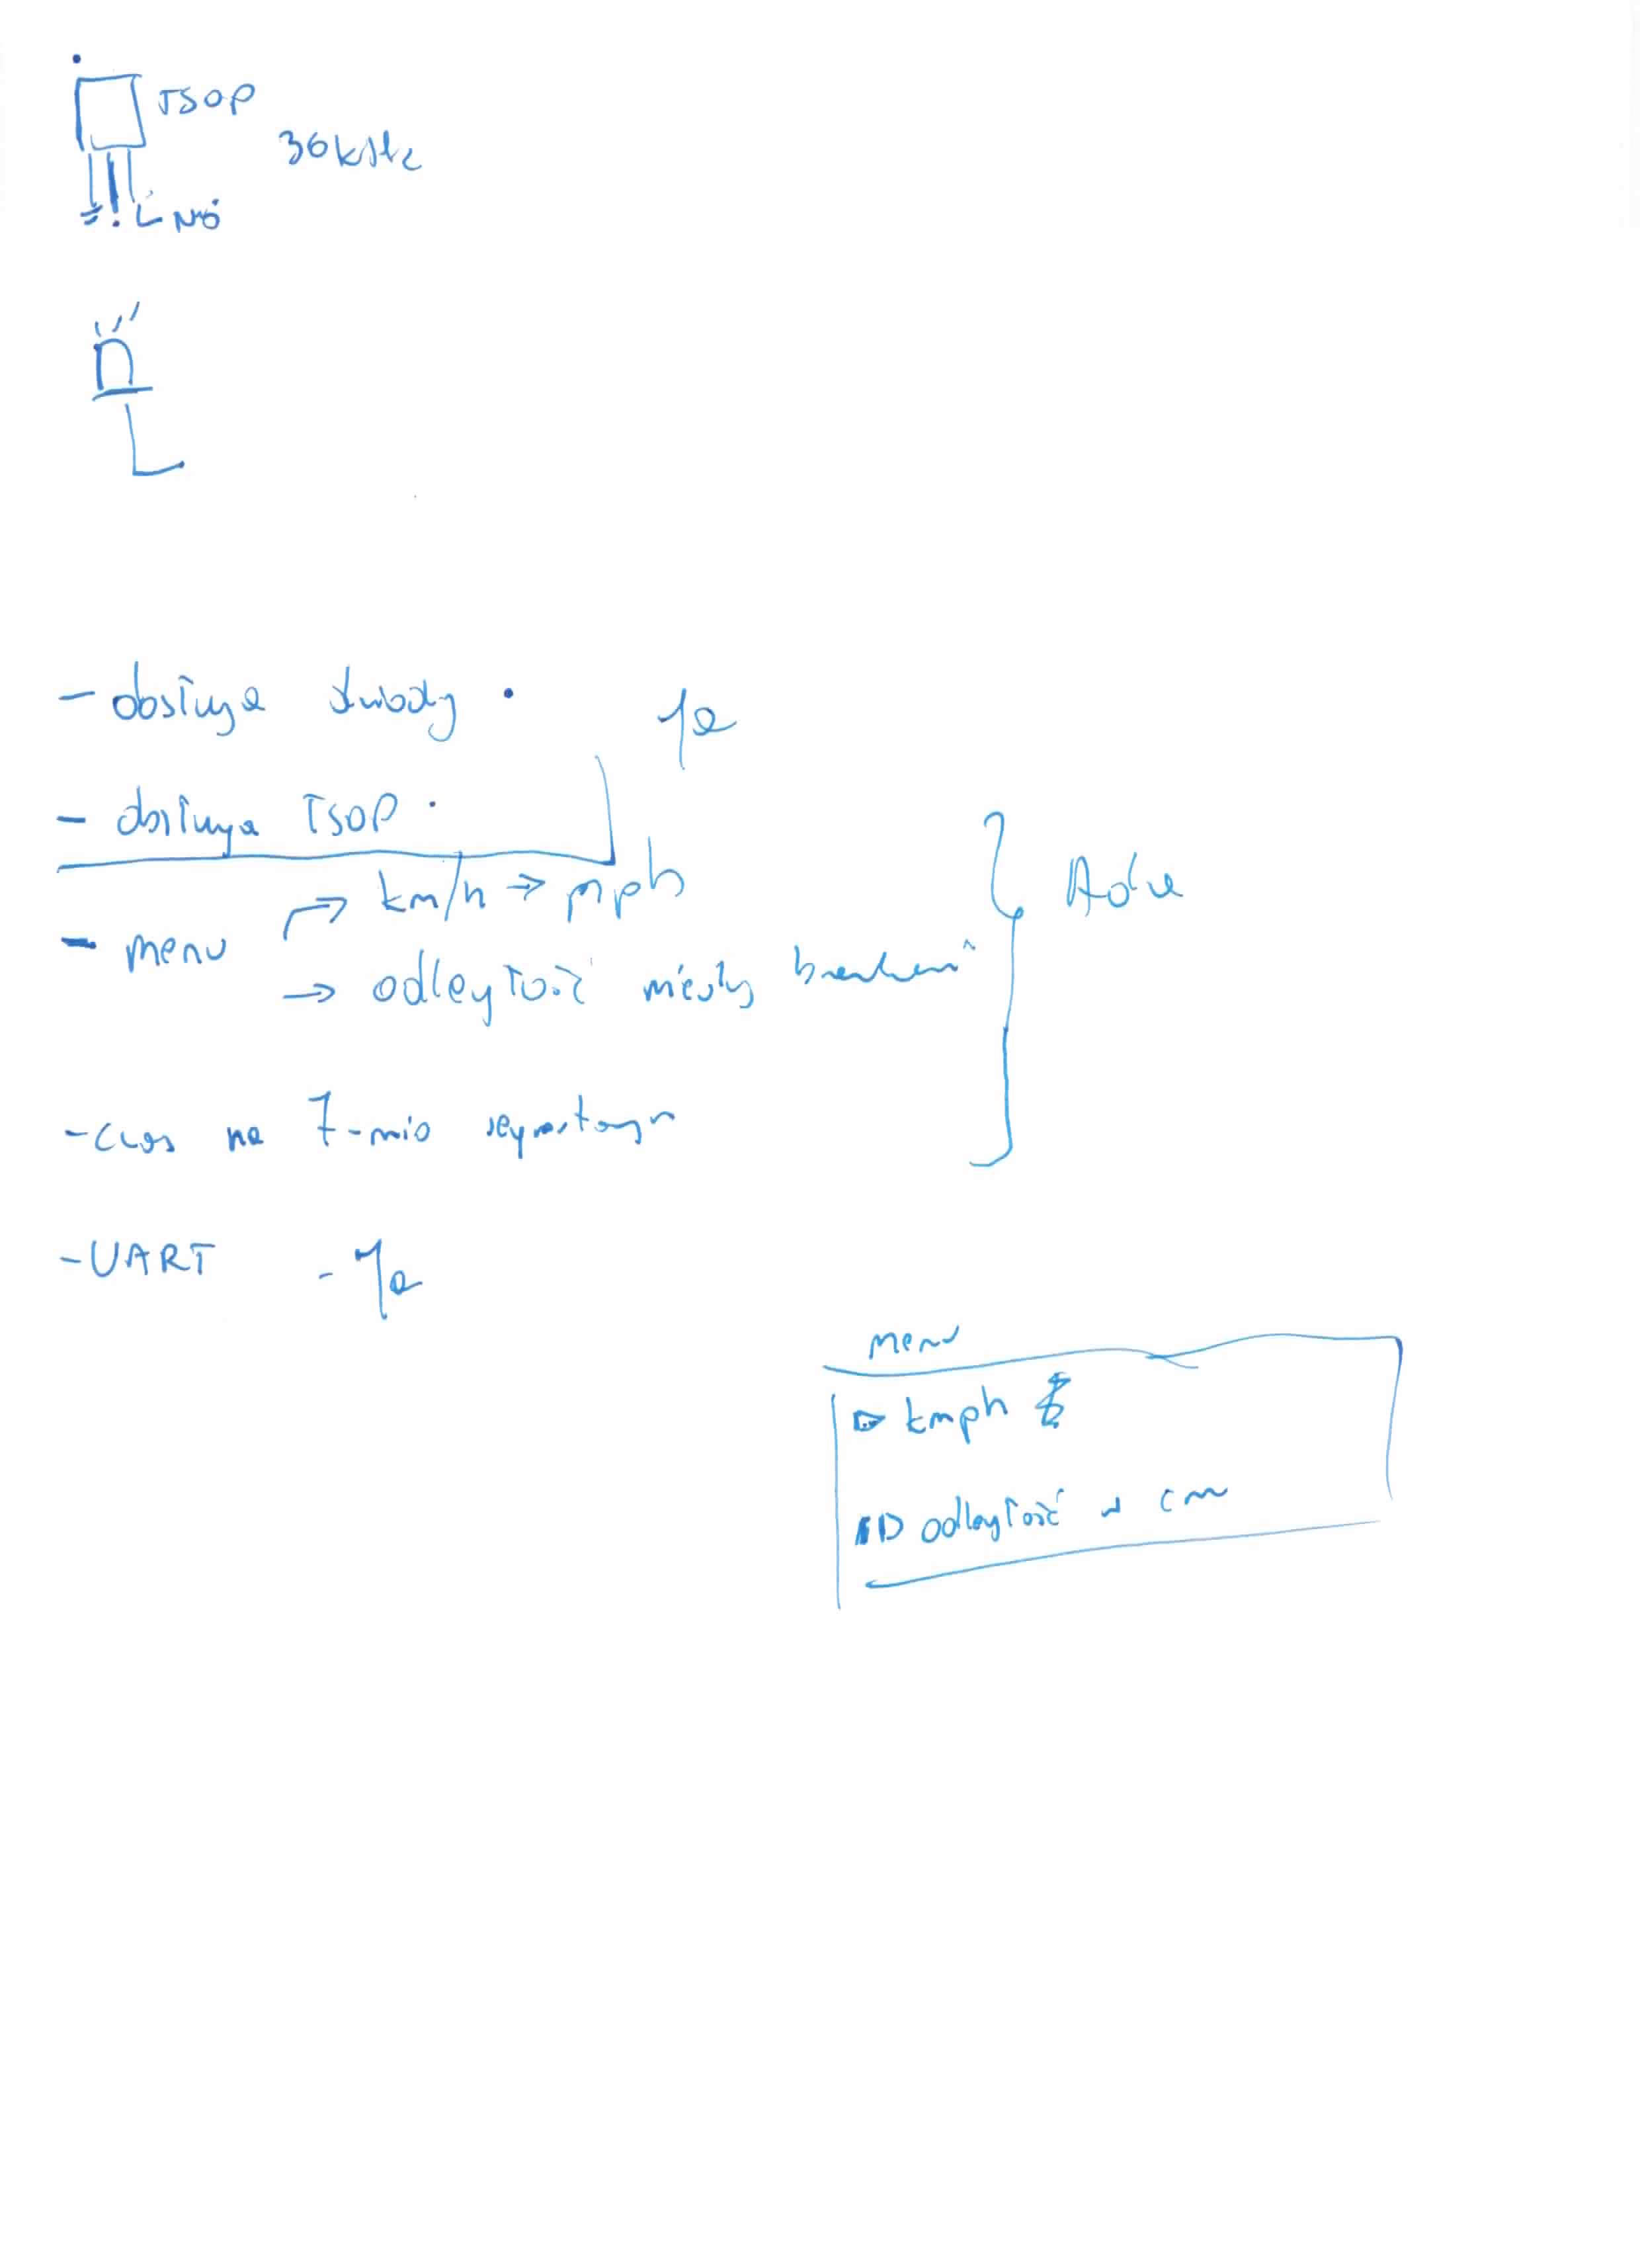 TSOP
36kHz
- obsługa diody
Ja
- obsługa TSOP
km/h → mph
- menu
→ odległość między bramkami
- czas na 7-mio segmentowym
- UART - Ja
menu
kmph
odległość w cm